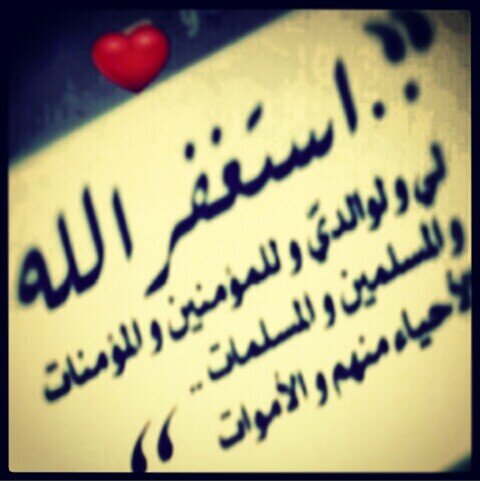 ".. استغفر الله
لي ولوالديّ وللمؤمنين والمؤمنات
والمسلمين والمسلمات ..
الأحياء منهم والأموات "